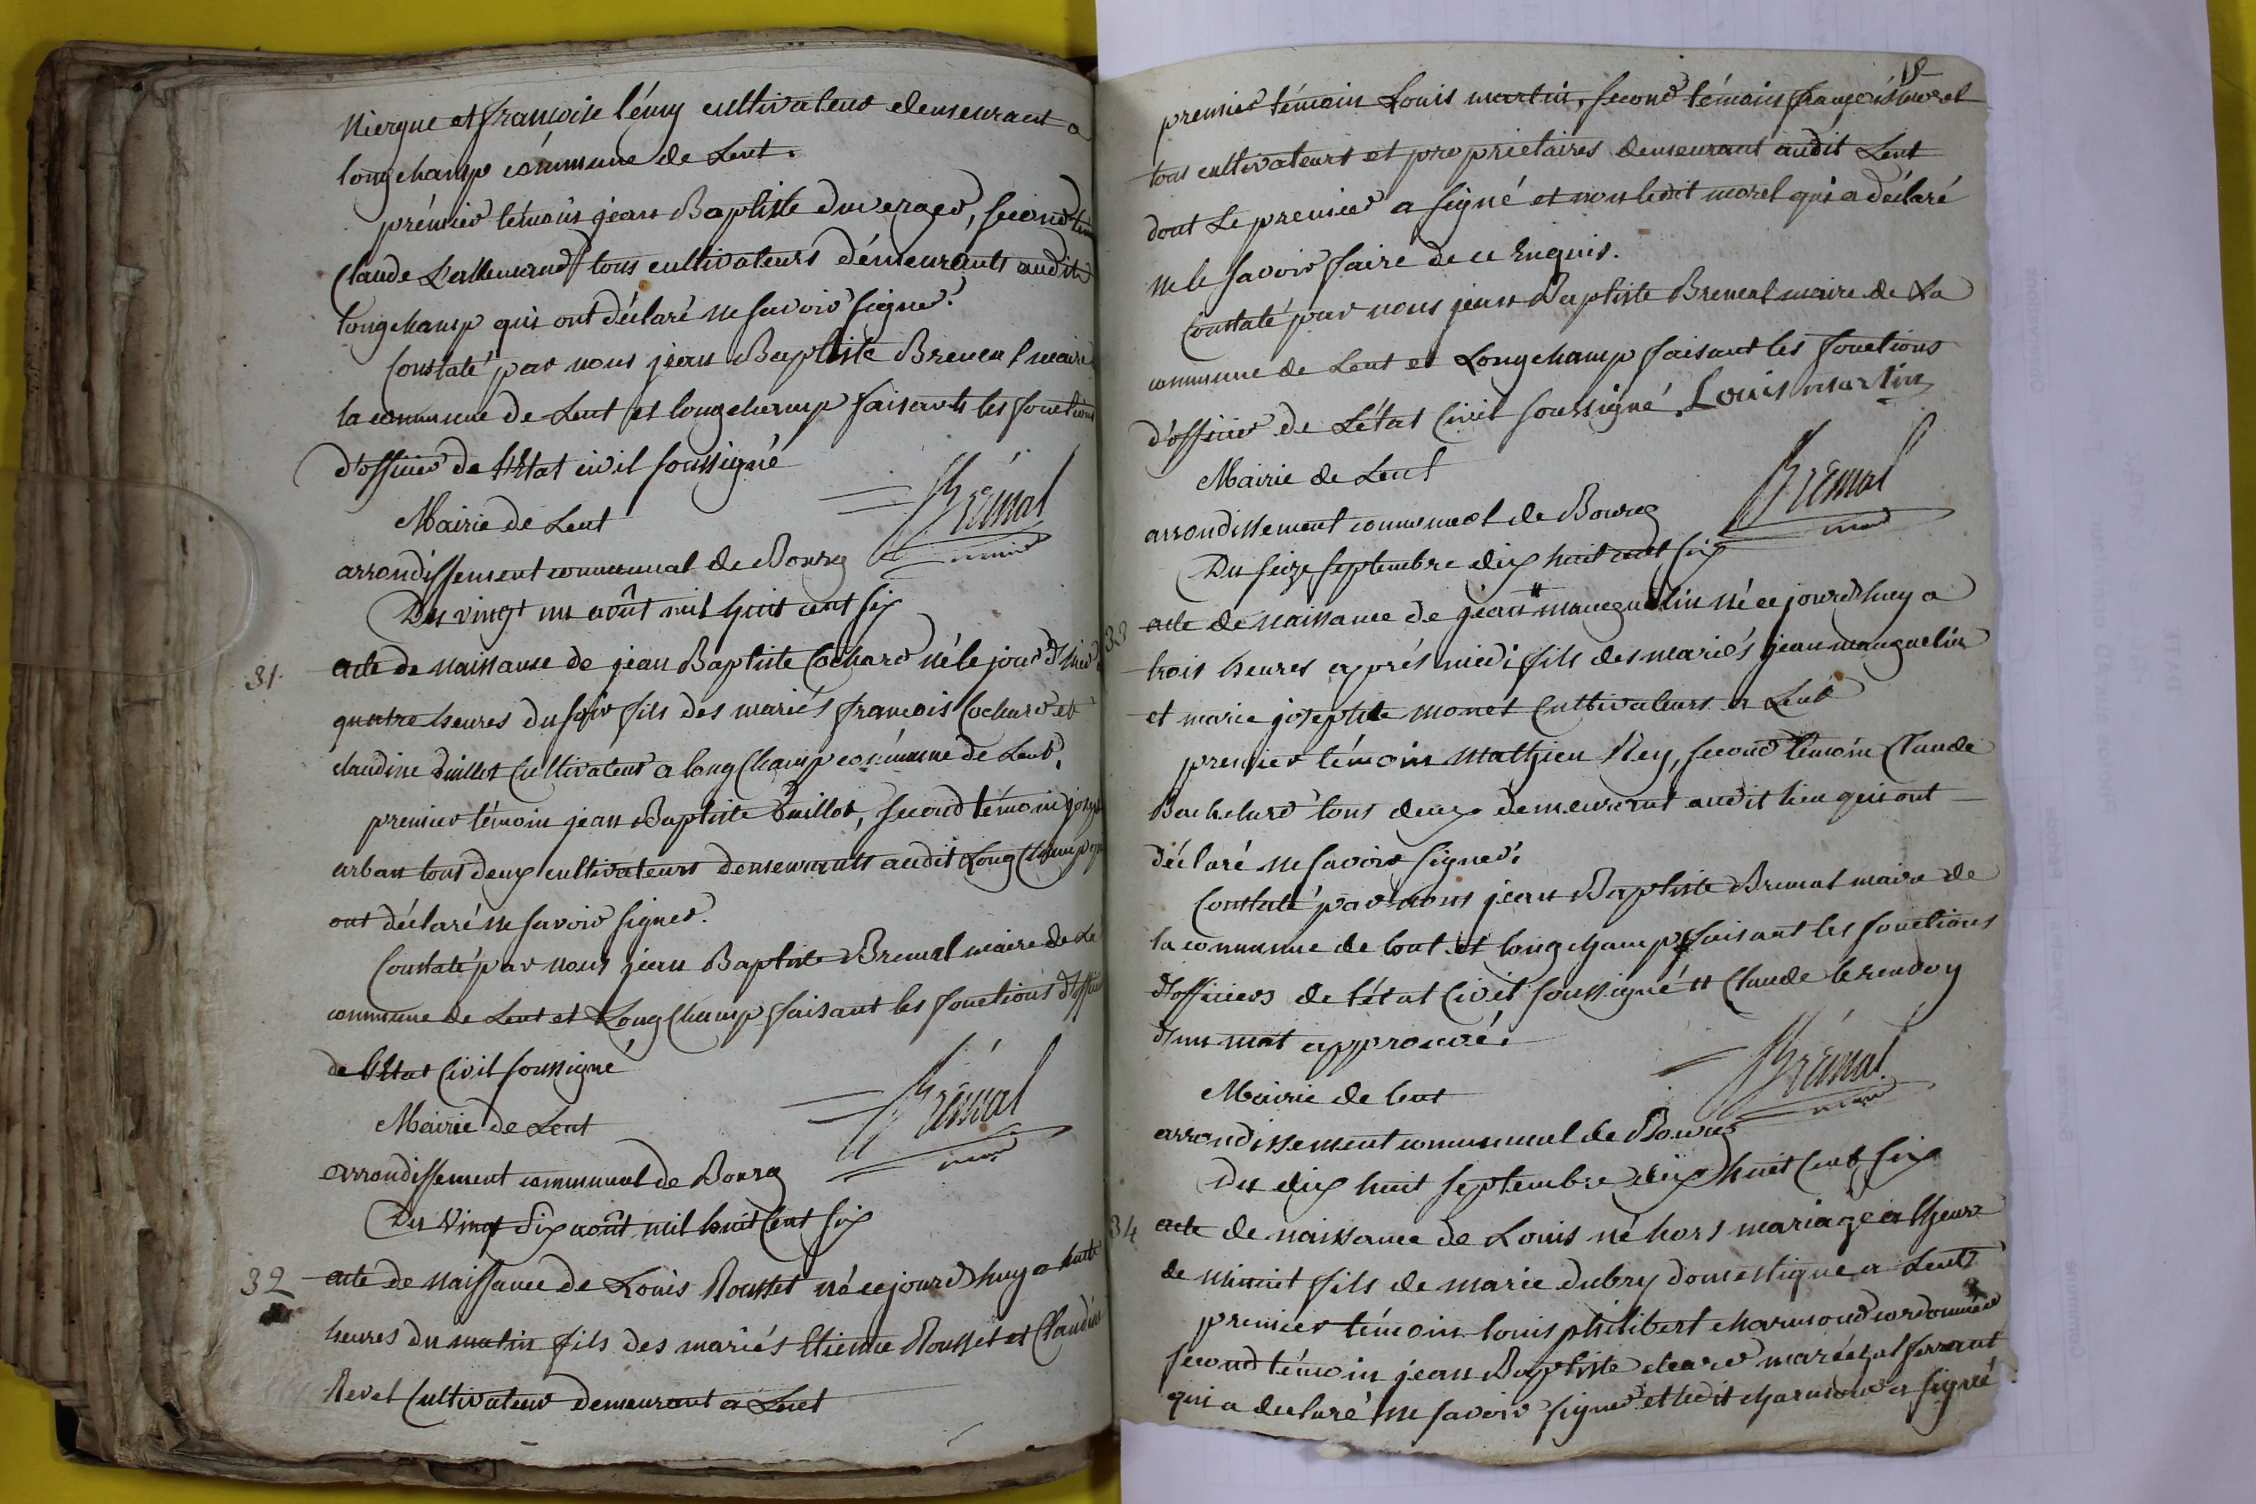 Niergue et françoise lémy cultivateur demeurant a
longchamp commune de Lent.
prémier témoin jean Baptiste duverger, second tém
Claude Lallemand tous cultivateurs démeurants audit
longchamp qui ont déclaré ne savoir signer.
Constaté par nous jean Baptiste Bremal maire
la commune de Lent et longchamp faisants les fonctions
d'officier de l'Etat civil soussigné
Brémal
maire
Mairie de Lent
arrondissement communal de Bourg
Du vingt un août mil huit cent six
31. acte de naissance de jean Baptiste Cochard né le jour d'hier a
quatre heures du soir fils des mariés françois Cochard et
claudine Guillot Cultivateur a long Champ commune de Lent.
premier témoin jean Baptiste Guillot, second témoin joseph
urban tous deux cultivateurs demeurants audit Long Champ qui
ont déclaré ne savoir signer.
Constaté par nous jean Baptiste Bremal maire de La
commune de Lent et Long Champ faisant les fonctions d'officier
de l'Etat Civil soussigné
Brémal
maire
Mairie de Lent
arrondissement communal de Bourg
Du Vingt Six août mil huit Cent six
32 acte de naissance de Louis Rousset né ce jourd'huy a huit
heures du matin fils des mariés Etienne Rousset et Claudine
Revel Cultivateur demeurant a Lent
18
premier témoin Louis martin, second témoin françois morel
tous cultivateurs et propriétaires demeurant audit Lent
dont Le premier a signé et non ledit morel qui a déclaré
ne le savoir faire de ce Enquis.
Constaté par nous jean Baptiste Bremal maire de La
commune de Lent et Longchamp faisant les fonctions
d'officier de L'état Civil soussigné. Louis martin
Brémal
maire
Mairie de Lent
arrondissement communal de Bourg
Du seize septembre dix huit cent six
33 acte de naissance de jean # manguelin né ce jourd'huy a
trois heures après midi fils des mariés jean manguelin
et marie josephte monet Cultivateurs a Lent
premier témoin Mathieu Rey, second témoin Claude
Bachelard tous deux demeurant audit lieu qui ont
déclaré ne savoir signer.
Constaté par nous jean Baptiste Bremal maire de
la commune de lent et longchamp faisant les fonctions
d'officiers de l'état Civil soussigné # Claude le rendoy
d'un mot approuvé.
Brémal
maire
Mairie de lent
arrondissement communal de Bourg
Du dix huit septembre dix huit Cent six
34 acte de naissance de Louis né hors mariage a lheure
de minuit fils de marie dubry domestique a Lent
premier témoin louis philibert charmond cordonnier
second témoin jean Baptiste clearer maréchal ferrant
qui a declaré ne savoir signer et ledit charmond a signé